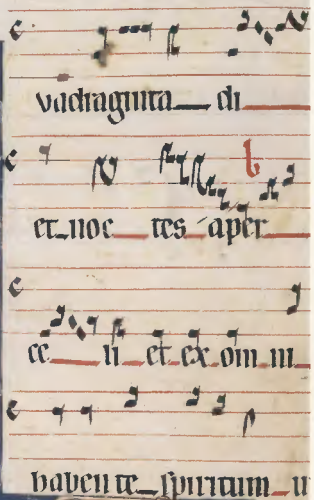 vadraginta di
et noc tes aper
ce li et ex om ni
habente spiritum u